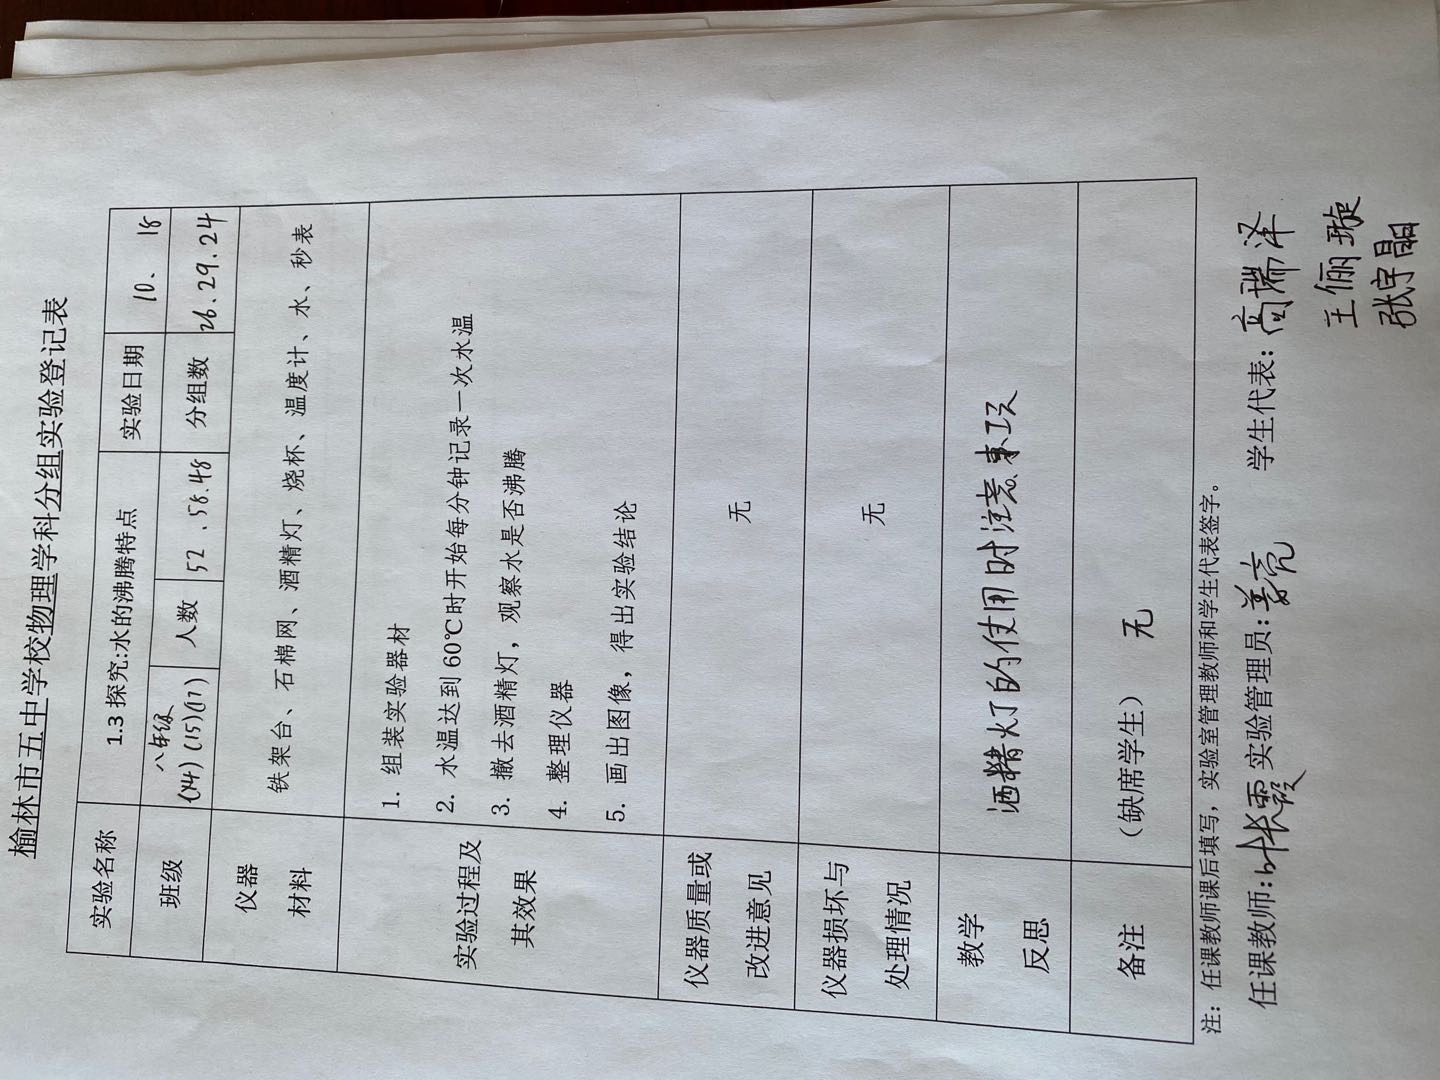 榆林市五中学校物理学科分组实验登记表
实验名称 1.3 探究:水的沸腾特点 实验日期 10. 18
班级 八年级 (14)(15)(17) 人数 52.58.48 分组数 26.29.24
仪器
材料
铁架台、石棉网、酒精灯、烧杯、温度计、水、秒表
实验过程及
其效果
1. 组装实验器材
2. 水温达到 60℃时开始每分钟记录一次水温
3. 撤去酒精灯，观察水是否沸腾
4. 整理仪器
5. 画出图像，得出实验结论
仪器质量或
改进意见
无
仪器损坏与
处理情况
无
教学
反思
酒精灯的使用时注意事项
备注 （缺席学生） 无
注：任课教师课后填写，实验室管理教师和学生代表签字。
任课教师: 叶长霞 实验管理员: 学生代表: 高瑞泽
王俪璇
张宇晶